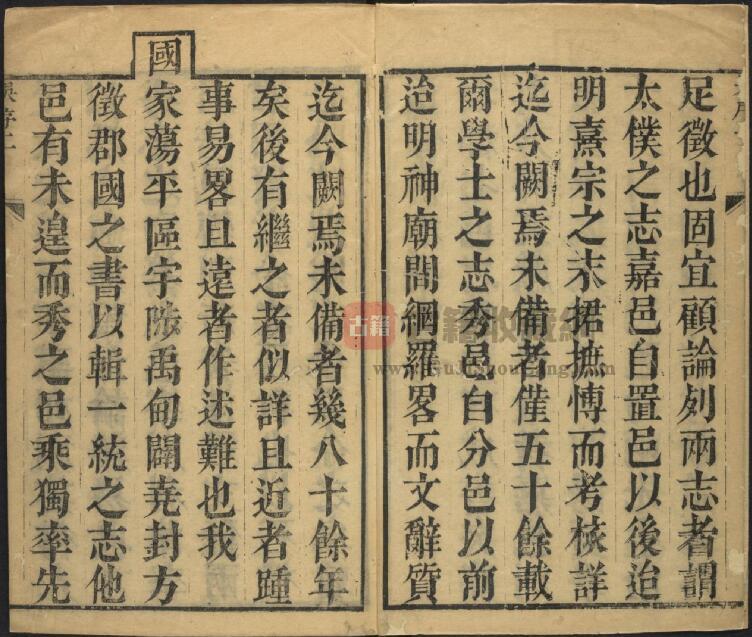 足徵也固宜顧論列兩志者謂
太僕之志嘉邑自置邑以後迨
明熹宗之末捃摭愽而考核詳
迄今闕焉未備者僅五十餘載
爾學士之志秀邑自分邑以前
迨明神廟間綱羅畧而文辭質
迄今闕焉未備者幾八十餘年
矣後有繼之者似詳且近者踵
事易畧且遠者作述難也我
國家蕩平區宇陟禹甸闢堯封方
徵郡國之書以輯一統之志他
邑有未遑而秀之邑乘獨率先
古籍